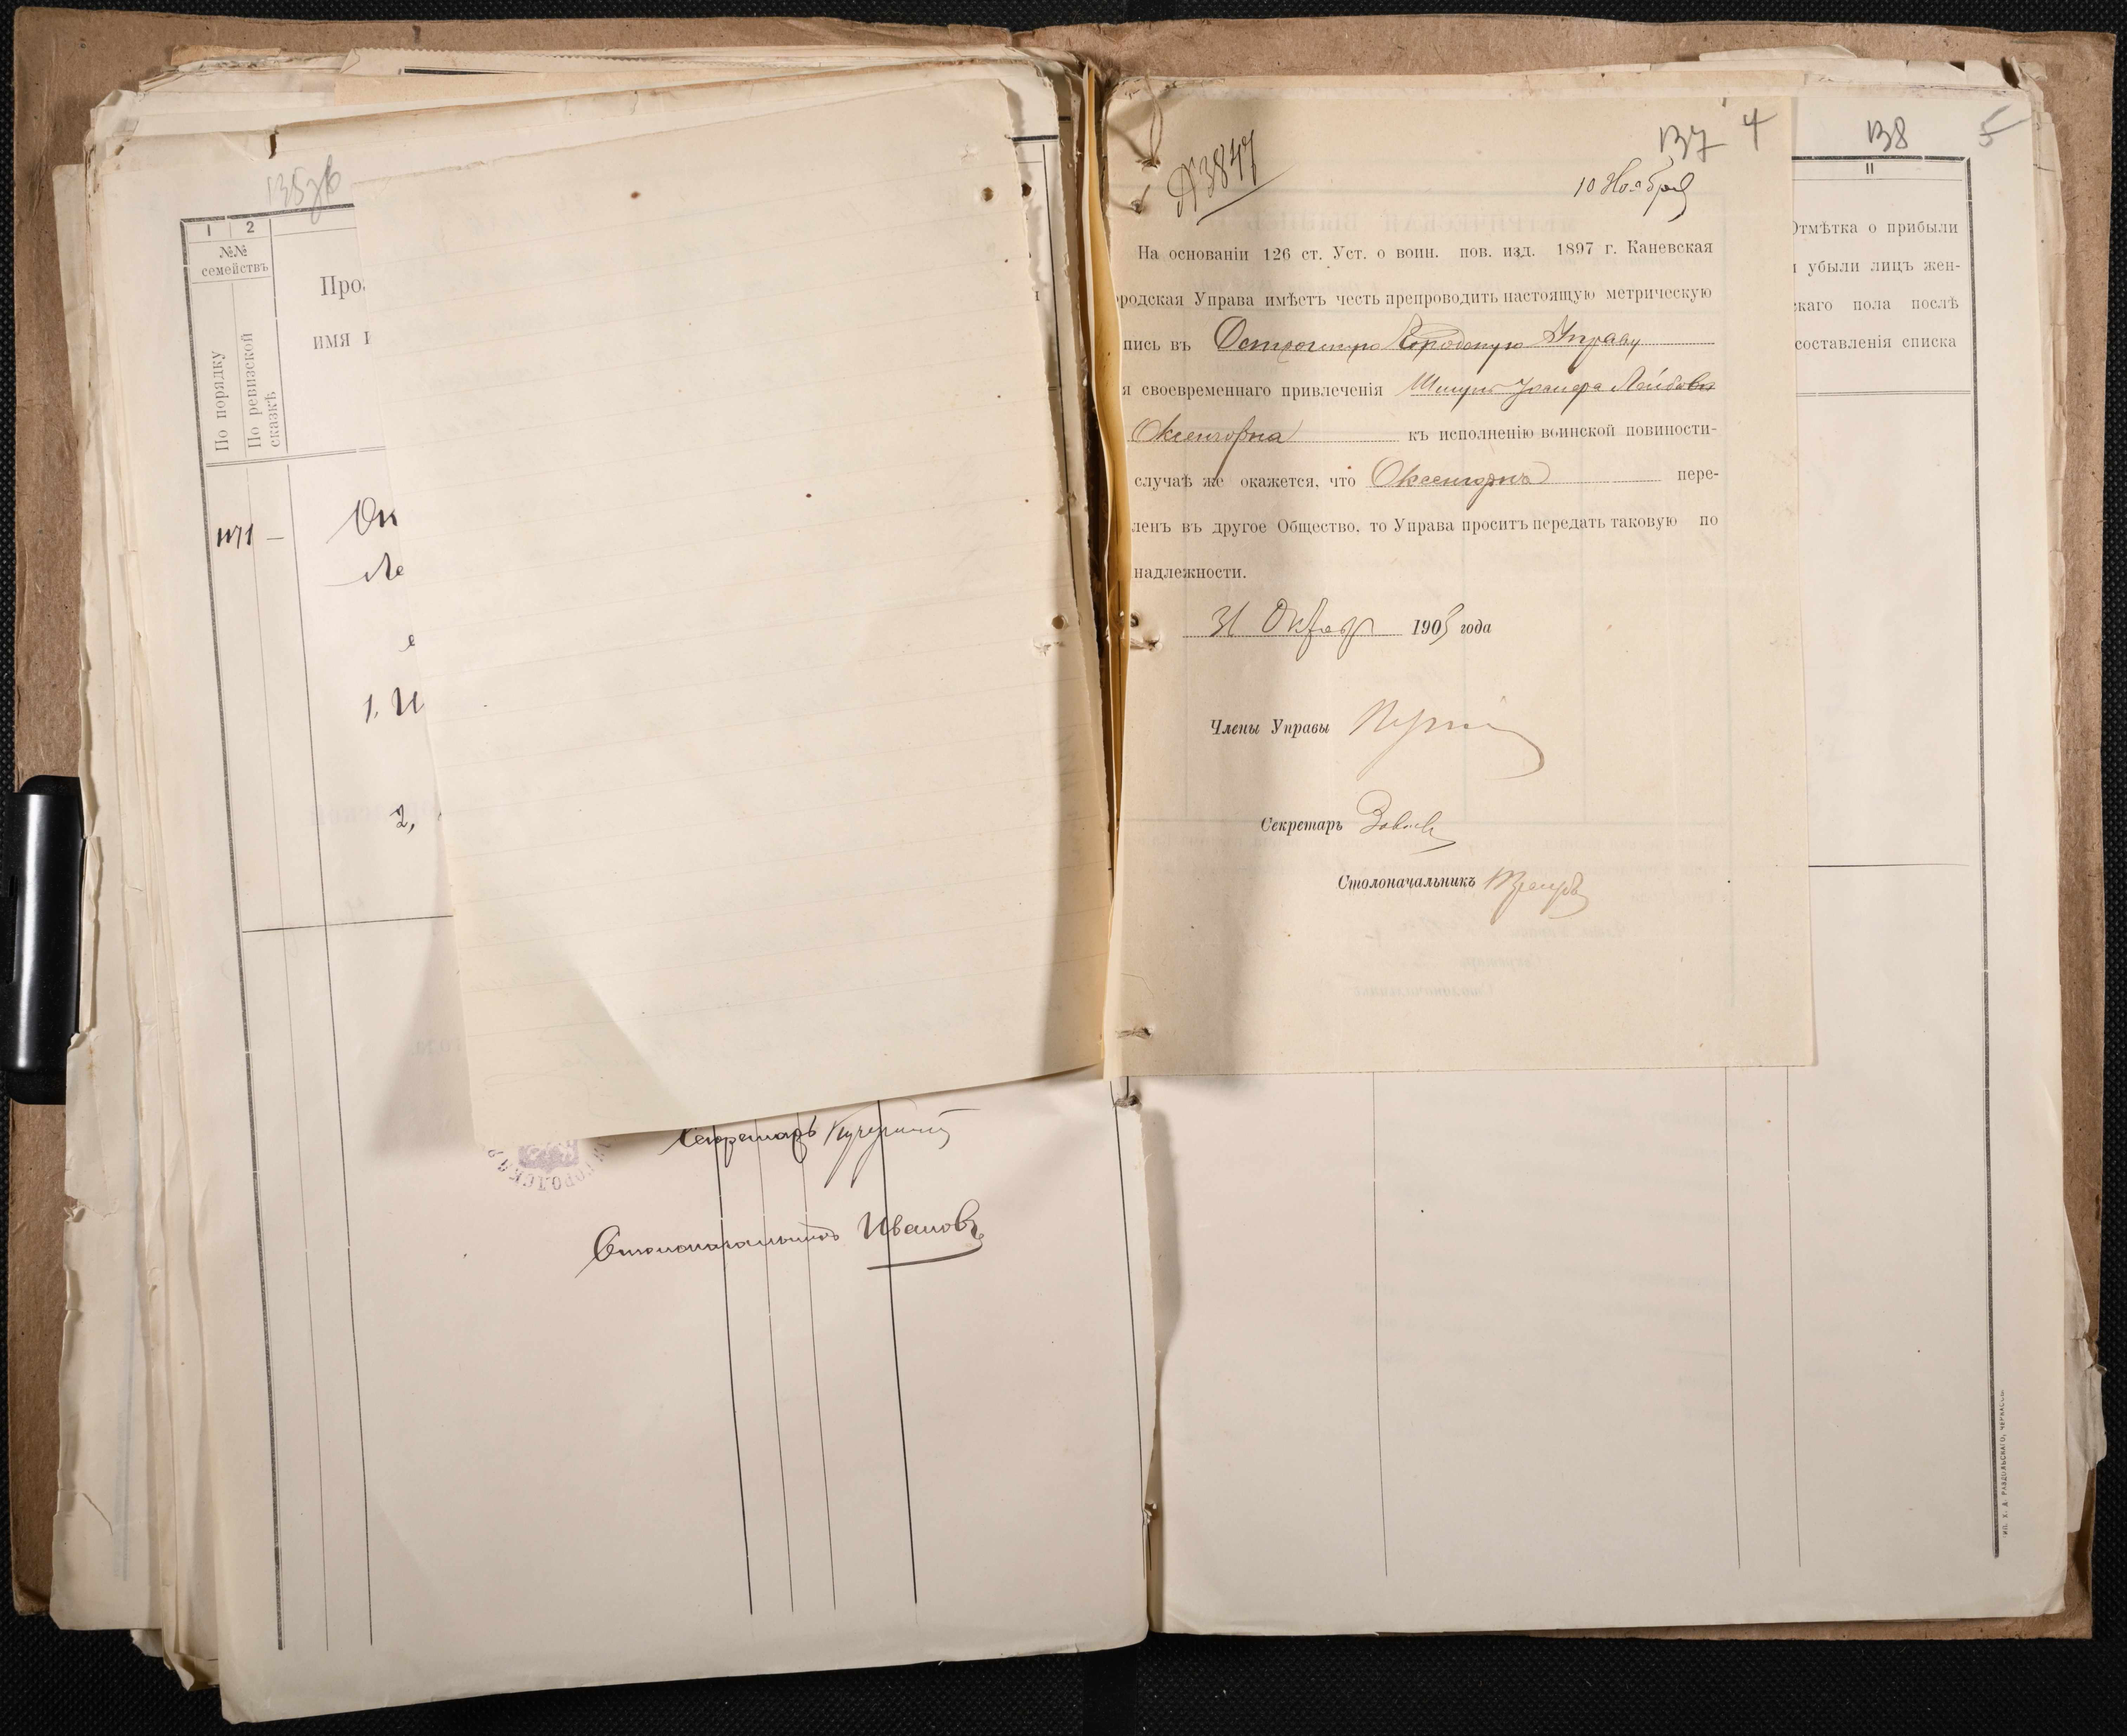 135 об
1
2
№№
семействъ
По порядку
По ревизской
сказкѣ
Про
имя и
1171 —
Ок
Ле
1. И
2,
Секретарь
Столоначальникъ Ивановъ
№ 3847
137 4
10 Ноября
На основаніи 126 ст. Уст. о воин. пов. изд. 1897 г. Каневская
родская Управа имѣетъ честь препроводить настоящую метрическую
пись въ Острожскую Городскую Управу
я своевременнаго привлеченія Лейбова
Оксенгорна къ исполненію воинской повиности-
случаѣ же окажется, что Оксенгорнъ пере-
ленъ въ другое Общество, то Управа проситъ передать таковую по
надлежности.
31 Октяб 1903 года
Члены Управы
Секретарь
Столоначальникъ
138 5
11
Отмѣтка о прибыли
и убыли лицъ жен-
скаго пола послѣ
составленія списка
ТИП. Х. Д. РАЗДОЛЬСКАГО, ЧЕРКАССЫ.